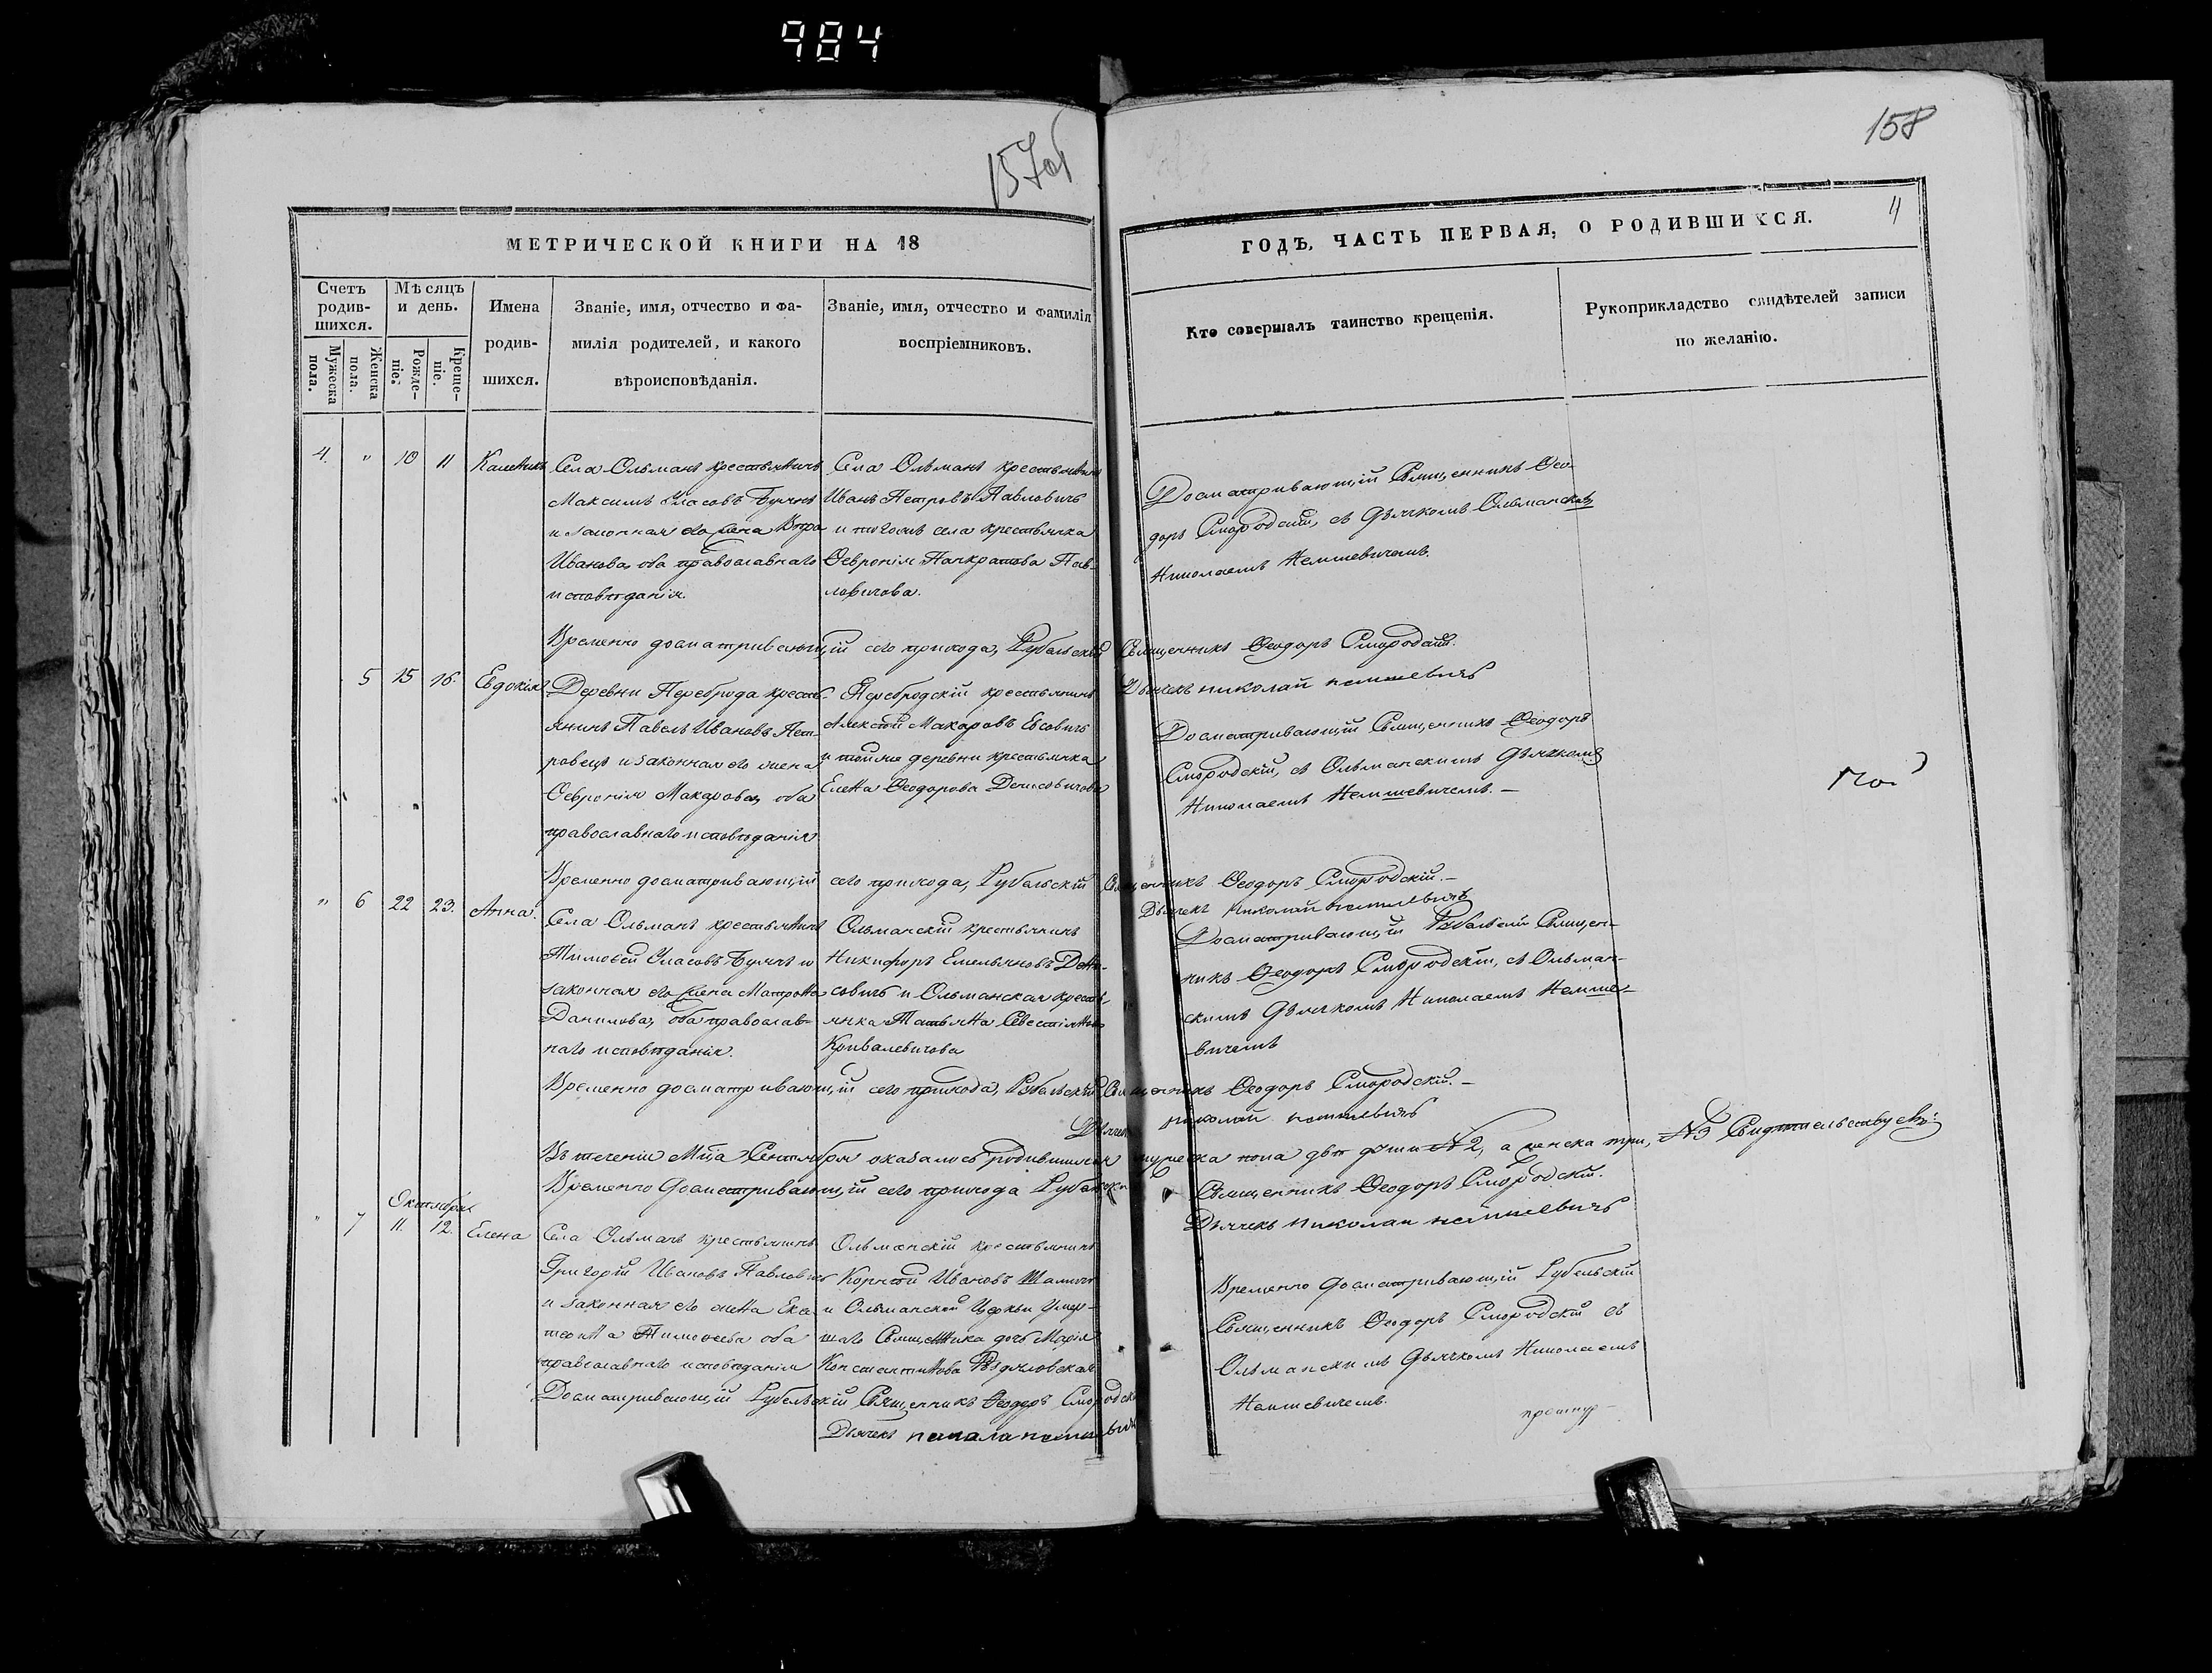 984
157об
158
МЕТРИЧЕСКОЙ КНИГИ НА 18
ГОДЪ, ЧАСТЬ ПЕРВАЯ, О РОДИВШИХСЯ.
4
Счетъ родив-шихся.
Мужеска пола.
Женска пола.
Мѣсяцъ и день.
Рожде-ніе.
Креще-ніе.
Имена
родив-
шихся.
Званіе, имя, отчество и фа-
милія родителей, и какого
вѣроисповѣданія.
Званіе, имя, отчество и фамилія
воспріемниковъ.
Кто совершалъ таинство крещенія.
Рукоприкладство свидѣтелей записи
по желанію.
4. " 10 11 Каленикъ
Села Ольманъ крестьянинъ
Максимъ Уласовъ Бучнъ
и законная его жена Вѣра
Иванова, оба православнаго
исповѣданія.
Села Ольманъ крестьянинъ
Иванъ Петровъ Павловичъ
и тогожъ села крестьянка
Ѳевронія Панкратова Пав-
ловичова.
Досматривающій Священникъ Ѳео-
доръ Смородскій, съ Дьячкомъ Ольманскимъ
Николаемъ Немшевичемъ.
Временно досматривающій сего прихода, Рубельскій Священникъ Ѳеодоръ Смородскій.
Дьячекъ николай немшевичъ
5 15 16. Евдокія
Деревни Переброда кресть-
янинъ Павелъ Ивановъ Пет-
ровецъ и законная его жена
Ѳевронія Макарова, оба
православнаго исповѣданія
Перебродскій крестьянинъ
Алексѣй Макаровъ Евсовичъ
и тойже деревни крестьянка
Елена Ѳеодорова Денисовичова
Досматривающій Священникъ Ѳеодоръ
Смородскій, съ Ольманскимъ Дьячкомъ
Николаемъ Немшевичемъ. —
Временно досматривающій сего прихода, Рубельскій Священникъ Ѳеодоръ Смородскій. —
Дьячекъ николай немшевичъ
" 6 22 23. Анна.
Села Ольманъ крестьянинъ
Тимоѳей Уласовъ Бучнъ и
законная его жена Матрона
Данилова, оба православ-
наго исповѣданія.
Ольманскій крестьянинъ
Никифоръ Емельяновъ Дени-
совичъ и Ольманская кресть-
янка Татьяна Севестіянова
Кривалевичова
Досматривающій Рубельскій Священ-
никъ Ѳеодоръ Смородскій, съ Ольман-
скимъ Дьячкомъ Николаемъ Немше-
вичемъ
Временно досматривающій сего прихода, Рубельскій Священникъ Ѳеодоръ Смородскій. —
Дьячекъ николай немшевичъ
Въ теченіи Мца Сентября оказалось родившихся мужеска пола двѣ души № 2, а женска три, № 3 Свидѣтельствую
Временно Досматривающій сего прихода Рубельскій Священникъ Ѳеодоръ Смородскій.
Дьячекъ николай немшевичъ
Октября
" 7 11. 12. Елена
Села Ольманъ крестьянинъ
Григорій Ивановъ Павловичъ
и законная его жена Ека-
терина Тимоѳеева оба
православнаго исповѣданія
Ольманскій крестьянинъ
Корнѣй Ивановъ
и Ольманской Церкви умер-
шаго Священника дочь Марія
Константинова
Временно Досматривающій Рубельскій
Священникъ Ѳеодоръ Смородскій съ
Ольманскимъ Дьячкомъ Николаемъ
Немшевичемъ.
Досматривающій Рубельскій Священникъ Ѳеодоръ Смородскій
Дьячекъ николай немшевичъ